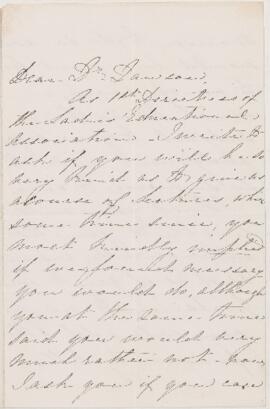 Dear Dr. Dawson,
As 1st Directress of
the Ladies' Educational
Association. I write to
ask if you will be so
very kind as to give us
a course of lectures, when
some time since, you
most kindly
if we found necessary
you would do, although
you at the same time
said you would very
much rather not - now
I ask you if you